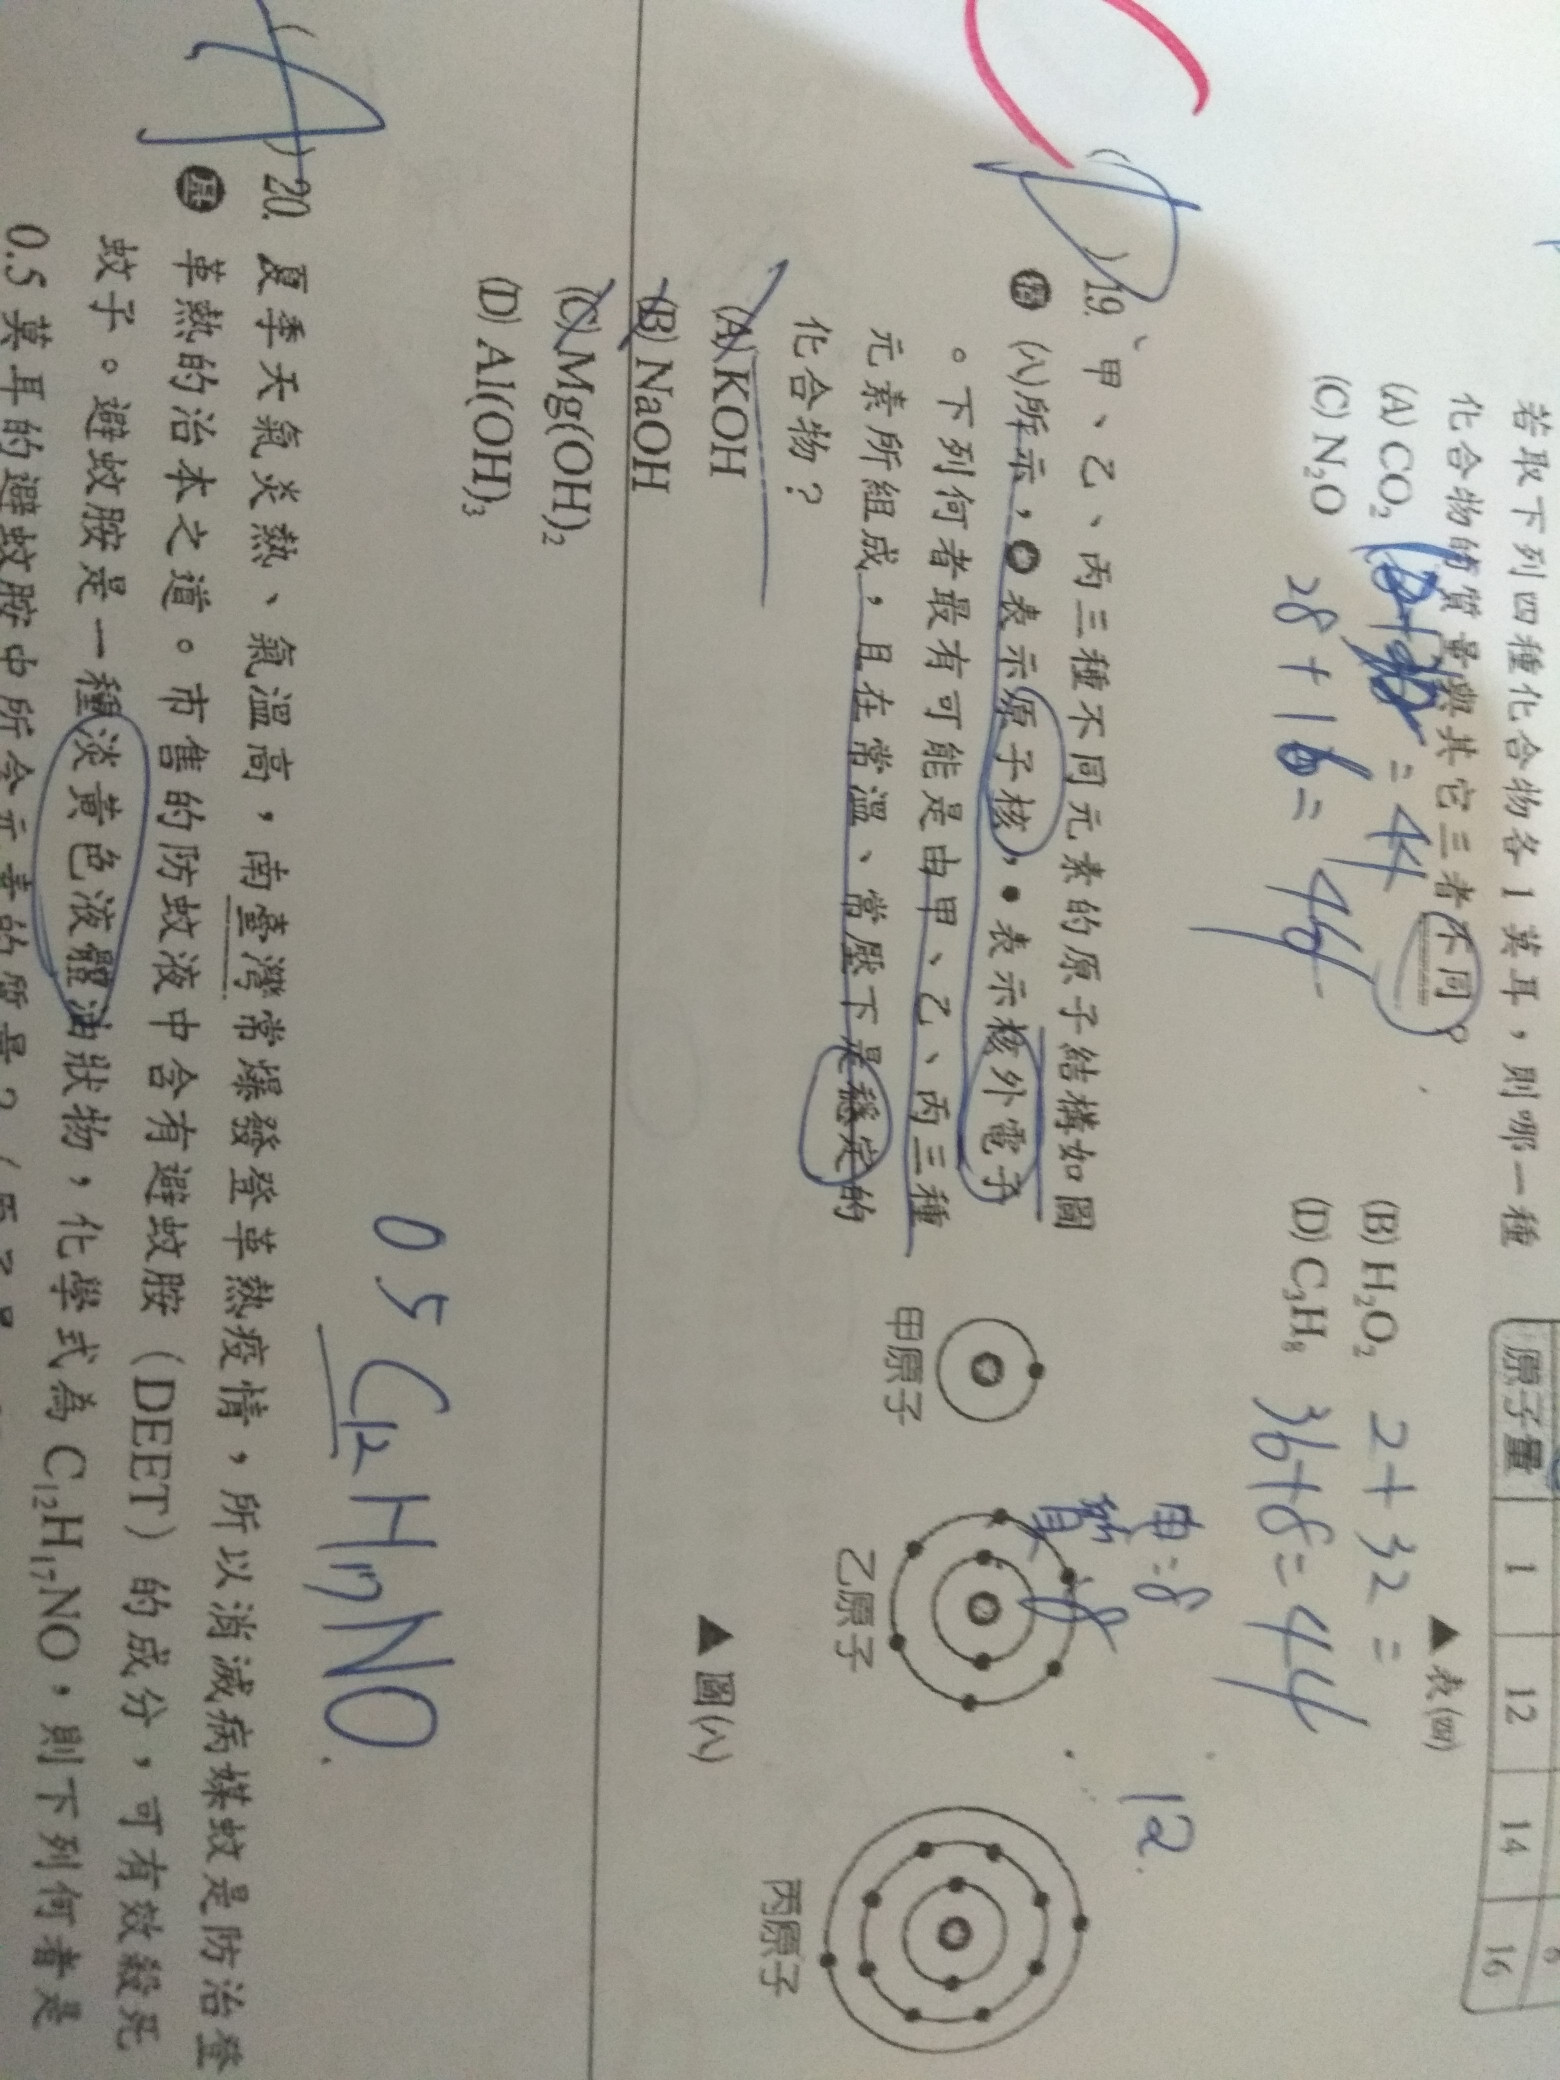 若取下列四種化合物各1莫耳，則哪一種
化合物的質量與其它三者不同？
(A) CO₂ (B) H₂O₂
(C) N₂O (D) C₃H₈
= 44
2+32=
28+16= 44
36+8=44
原子量 1 12 14 16
▲表(四)
(D) 19. 甲、乙、丙三種不同元素的原子結構如圖
(八)所示，表示原子核，•表示核外電子
。下列何者最有可能是由甲、乙、丙三種
元素所組成，且在常溫、常壓下是穩定的
化合物？
(A) KOH
(B) NaOH
(C) Mg(OH)₂
(D) Al(OH)₃
電=8
質 8
12
甲原子
乙原子
丙原子
▲圖(八)
0.5 C₁₂H₁₇NO
(A) 20. 夏季天氣炎熱、氣溫高，南臺灣常爆發登革熱疫情，所以消滅病媒蚊是防治登
革熱的治本之道。市售的防蚊液中含有避蚊胺（DEET）的成分，可有效殺死
蚊子。避蚊胺是一種淡黃色液體油狀物，化學式為C₁₂H₁₇NO，則下列何者是
0.5莫耳的避蚊胺中所含元素的質量？